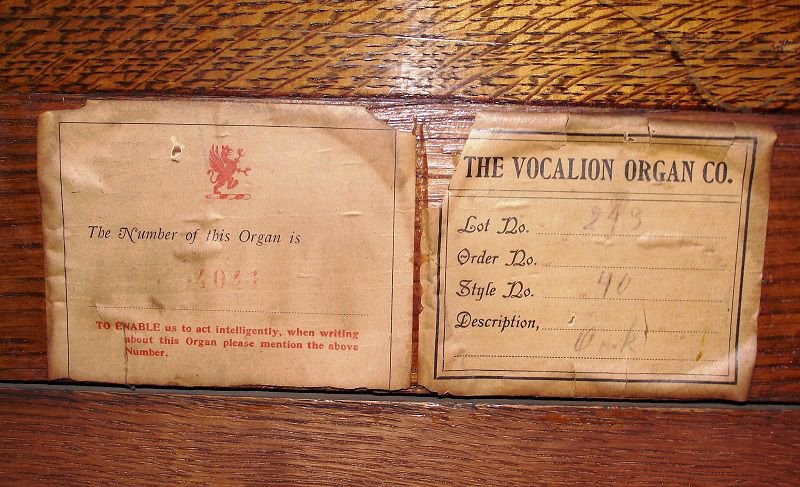 The Number of this Organ is
4041
TO ENABLE us to act intelligently, when writing
about this Organ please mention the above
Number.
THE VOCALION ORGAN CO.
Lot No. 243
Order No.
Style No. 40
Description,
Oak